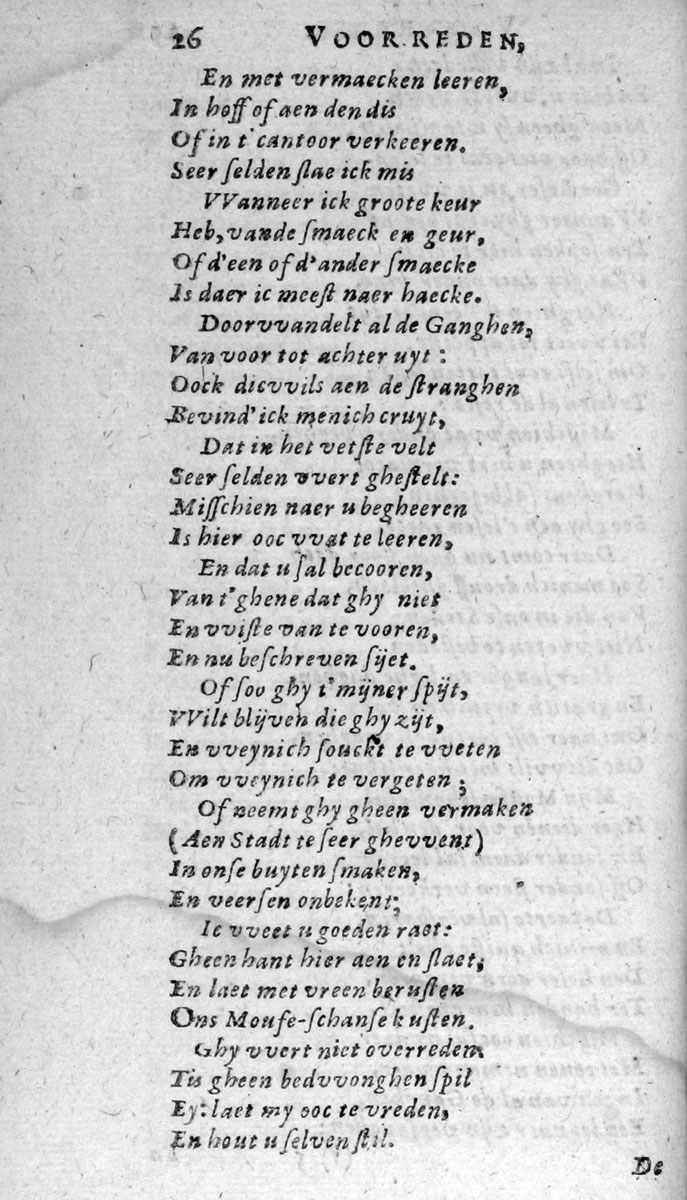 26 VOORREDEN,
En met vermaecken leeren,
In hoff of aen den dis
Of in t'cantoor verkeeren.
Seer ſelden ſlae ick mis
VVanneer ick groote keur
Heb, vande ſmaeck en geur,
Of d'een of d'ander ſmaecke
Is daer ic meeſt naer haecke.
Doorvvandelt al de Ganghen,
Van voor tot achter uyt:
Oock dicvvils aen de ſtranghen
Bevind'ick menich cruyt,
Dat in het vetſte velt
Seer ſelden vvert gheſtelt:
Miſſchien naer u begheeren
Is hier ooc vvat te leeren,
En dat u ſal becooren,
Van t'ghene dat ghy niet
En vviſte van te vooren,
En nu beſchreven ſijet.
Of ſoo ghy t'mijner ſpijt,
VVilt blijven die ghy zijt,
En vveynich ſouckt te vveten
Om vveynich te vergeten;
Of neemt ghy gheen vermaken
(Aen Stadt te ſeer ghevvent)
In onſe buyten ſmaken,
En veerſen onbekent;
Ic vveet u goeden raet:
Gheen hant hier aen en ſlaet;
En laet met vreen beruſten
Ons Moufe-ſchanſe kuſten.
Ghy vvert niet overredem
Tis gheen bedvvonghen ſpil
Ey: laet my ooc te vreden,
En hout u ſelven ſtil.
De